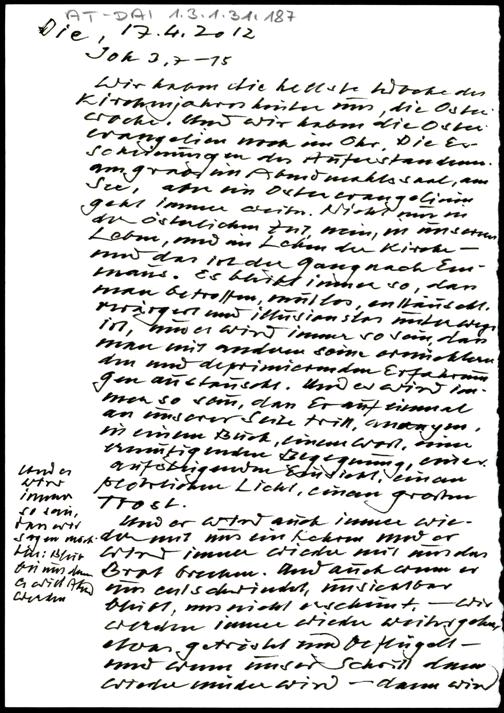 AT-DAI 1.3.1.31.187
Die, 17.4.2012
Joh 3,7-15
Wir haben die hellste Woche des
Kirchenjahres hinter uns, die Oster
woche. Und wir haben die Oster
evangelien noch im Ohr. Die Er-
scheinungen des Auferstandenen
am Grab im Abendmahlssaal, am
See, aber ein Osterevangelium
geht immer weiter. Nicht nur in
der österlichen Zeit, nein, in unserem
Leben, und im Leben der Kirche –
und das ist der Gang nach Em-
maus. Es bleibt immer so, das
man betroffen, mutlos, enttäuscht,
verärgert und illusionslos unterwegs
ist, und es wird immer so sein, das
man mit andern seine ernüchtern
den und deprimierenden Erfahrun
gen austauscht. Und es wird im-
mer so sein, das Er auf einmal
an unserer Seite tritt,
in einem Buch, einem Wort, einer
ermutigenden Begegnung, einer
aufsteigenden Einsicht, einem
plötzlichen Licht, einem großen
Trost.
Und er wird auch immer wie-
der mit uns einkehren und er
wird immer wieder mit uns das
Brot brechen. Und auch wenn er
uns entschwindet, unsichtbar
bleibt, uns nicht erscheint, – wir
werden immer wieder weitergehen
etwas getröstet und beflügelt –
und wenn unser Schritt dann
wieder müder wird – dann wird
Und es
wird
immer
so sein,
das wir
sagen möch-
ten: Bleib
bei uns denn
es will Abend
werden